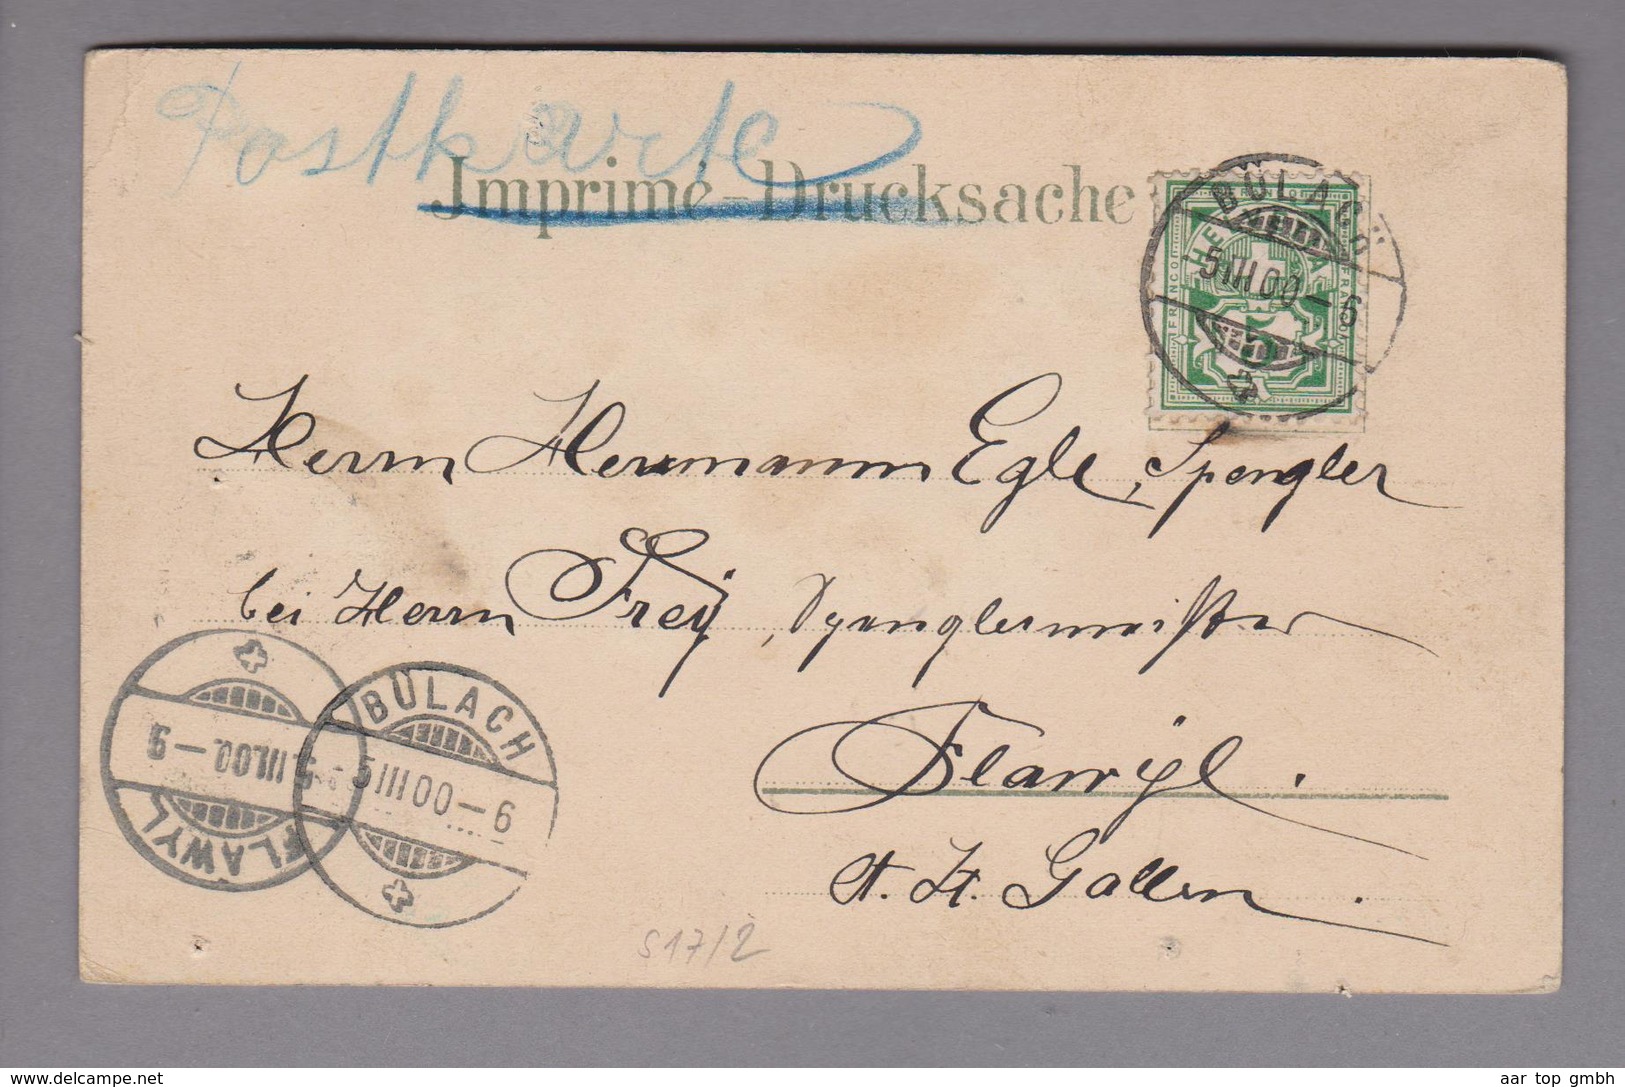 Postkarte
Imprimé-Drucksache
BÜLACH
HELVETIA
FRANCO FRANCO
-5 III 00-6
5
Herrn Hermann Egle, Spengler
bei Herrn Frey, Spenglermeister
Flawyl.
St. Gallen.
BÜLACH
-5 III 00-6
FLAWYL
5.III.00.-9
S17/2
aar top gmbh
www.delcampe.net